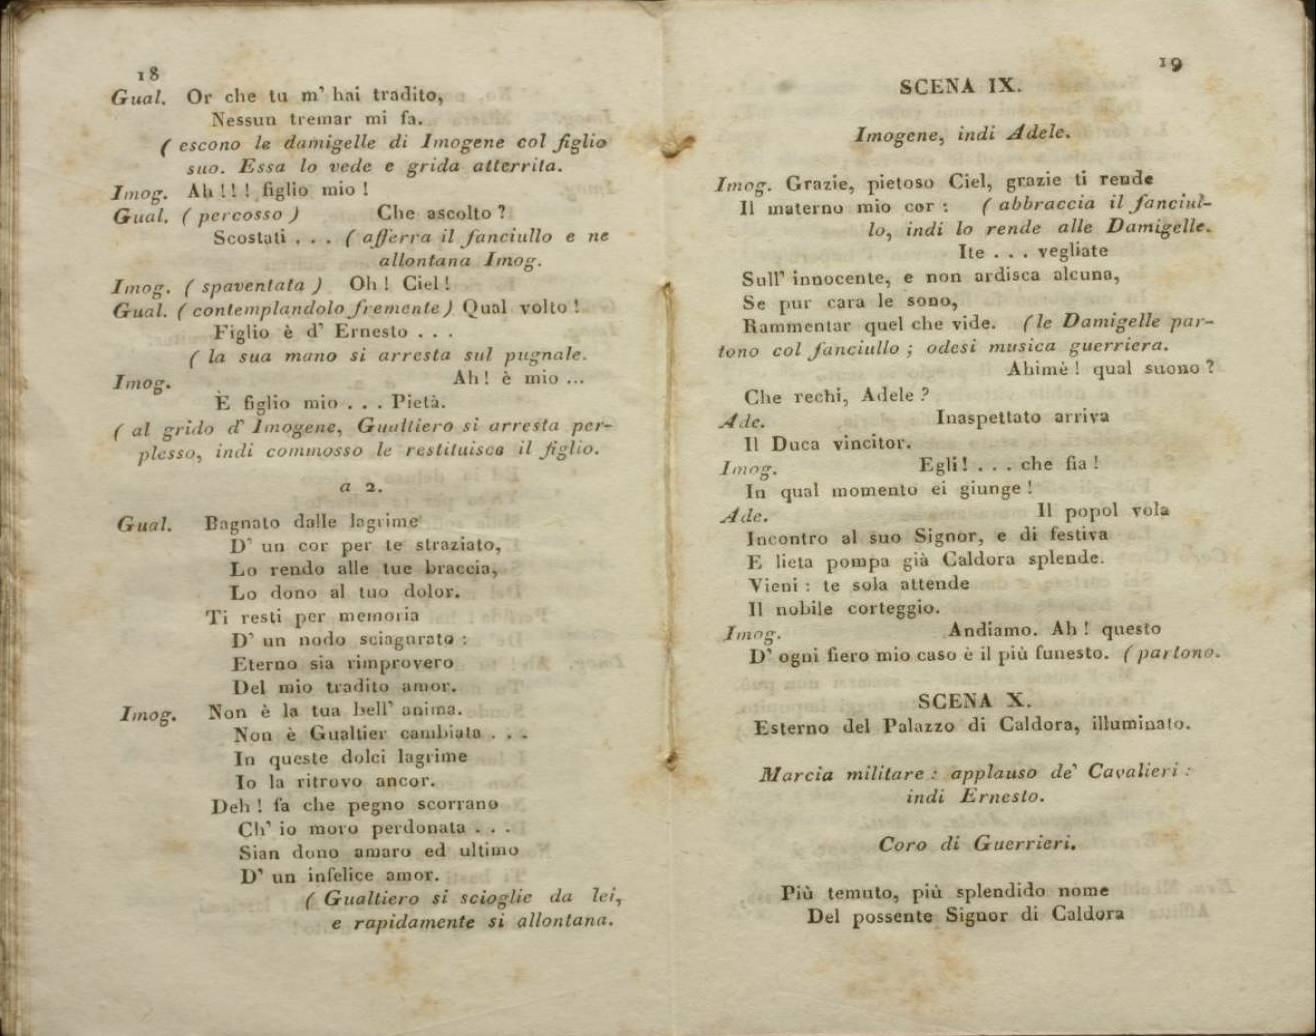 18
Gual. Or che tu m' hai tradito,
Nessun tremar mi fa.
( escono le damigelle di Imogene col figlio
suo. Essa lo vede e grida atterrita.
Imog. Ah ! ! ! figlio mio !
Gual. ( percosso ) Che ascolto ?
Scostati . . . ( afferra il fanciullo e ne
allontana Imog.
Imog. ( spaventata ) Oh ! Ciel !
Gual. ( contemplandolo fremente ) Qual volto !
Figlio è d' Ernesto . . .
( la sua mano si arresta sul pugnale.
Imog. Ah ! è mio ...
È figlio mio . . . Pietà.
( al grido d' Imogene, Gualtiero si arresta per-
plesso, indi commosso le restituisce il figlio.
a 2.
Gual. Bagnato dalle lagrime
D' un cor per te straziato,
Lo rendo alle tue braccia,
Lo dono al tuo dolor.
Ti resti per memoria
D' un nodo sciagurato :
Eterno sia rimprovero
Del mio tradito amor.
Imog. Non è la tua bell' anima.
Non è Gualtier cambiata . . .
In queste dolci lagrime
Io la ritrovo ancor.
Deh ! fa che pegno scorrano
Ch' io moro perdonata . . .
Sian dono amaro ed ultimo
D' un infelice amor.
( Gualtiero si scioglie da lei,
e rapidamente si allontana.
19
SCENA IX.
Imogene, indi Adele.
Imog. Grazie, pietoso Ciel, grazie ti rende
Il materno mio cor : ( abbraccia il fanciul-
lo, indi lo rende alle Damigelle.
Ite . . . vegliate
Sull' innocente, e non ardisca alcuna,
Se pur cara le sono,
Rammentar quel che vide. (le Damigelle par-
tono col fanciullo ; odesi musica guerriera.
Ahimè ! qual suono ?
Che rechi, Adele ?
Ade. Inaspettato arriva
Il Duca vincitor.
Imog. Egli ! . . . che fia !
In qual momento ei giunge !
Ade. Il popol vola
Incontro al suo Signor, e di festiva
E lieta pompa già Caldora splende.
Vieni : te sola attende
Il nobile corteggio.
Imog. Andiamo. Ah ! questo
D' ogni fiero mio caso è il più funesto. ( partono.
SCENA X.
Esterno del Palazzo di Caldora, illuminato.
Marcia militare : applauso de' Cavalieri :
indi Ernesto.
Coro di Guerrieri.
Più temuto, più splendido nome
Del possente Signor di Caldora